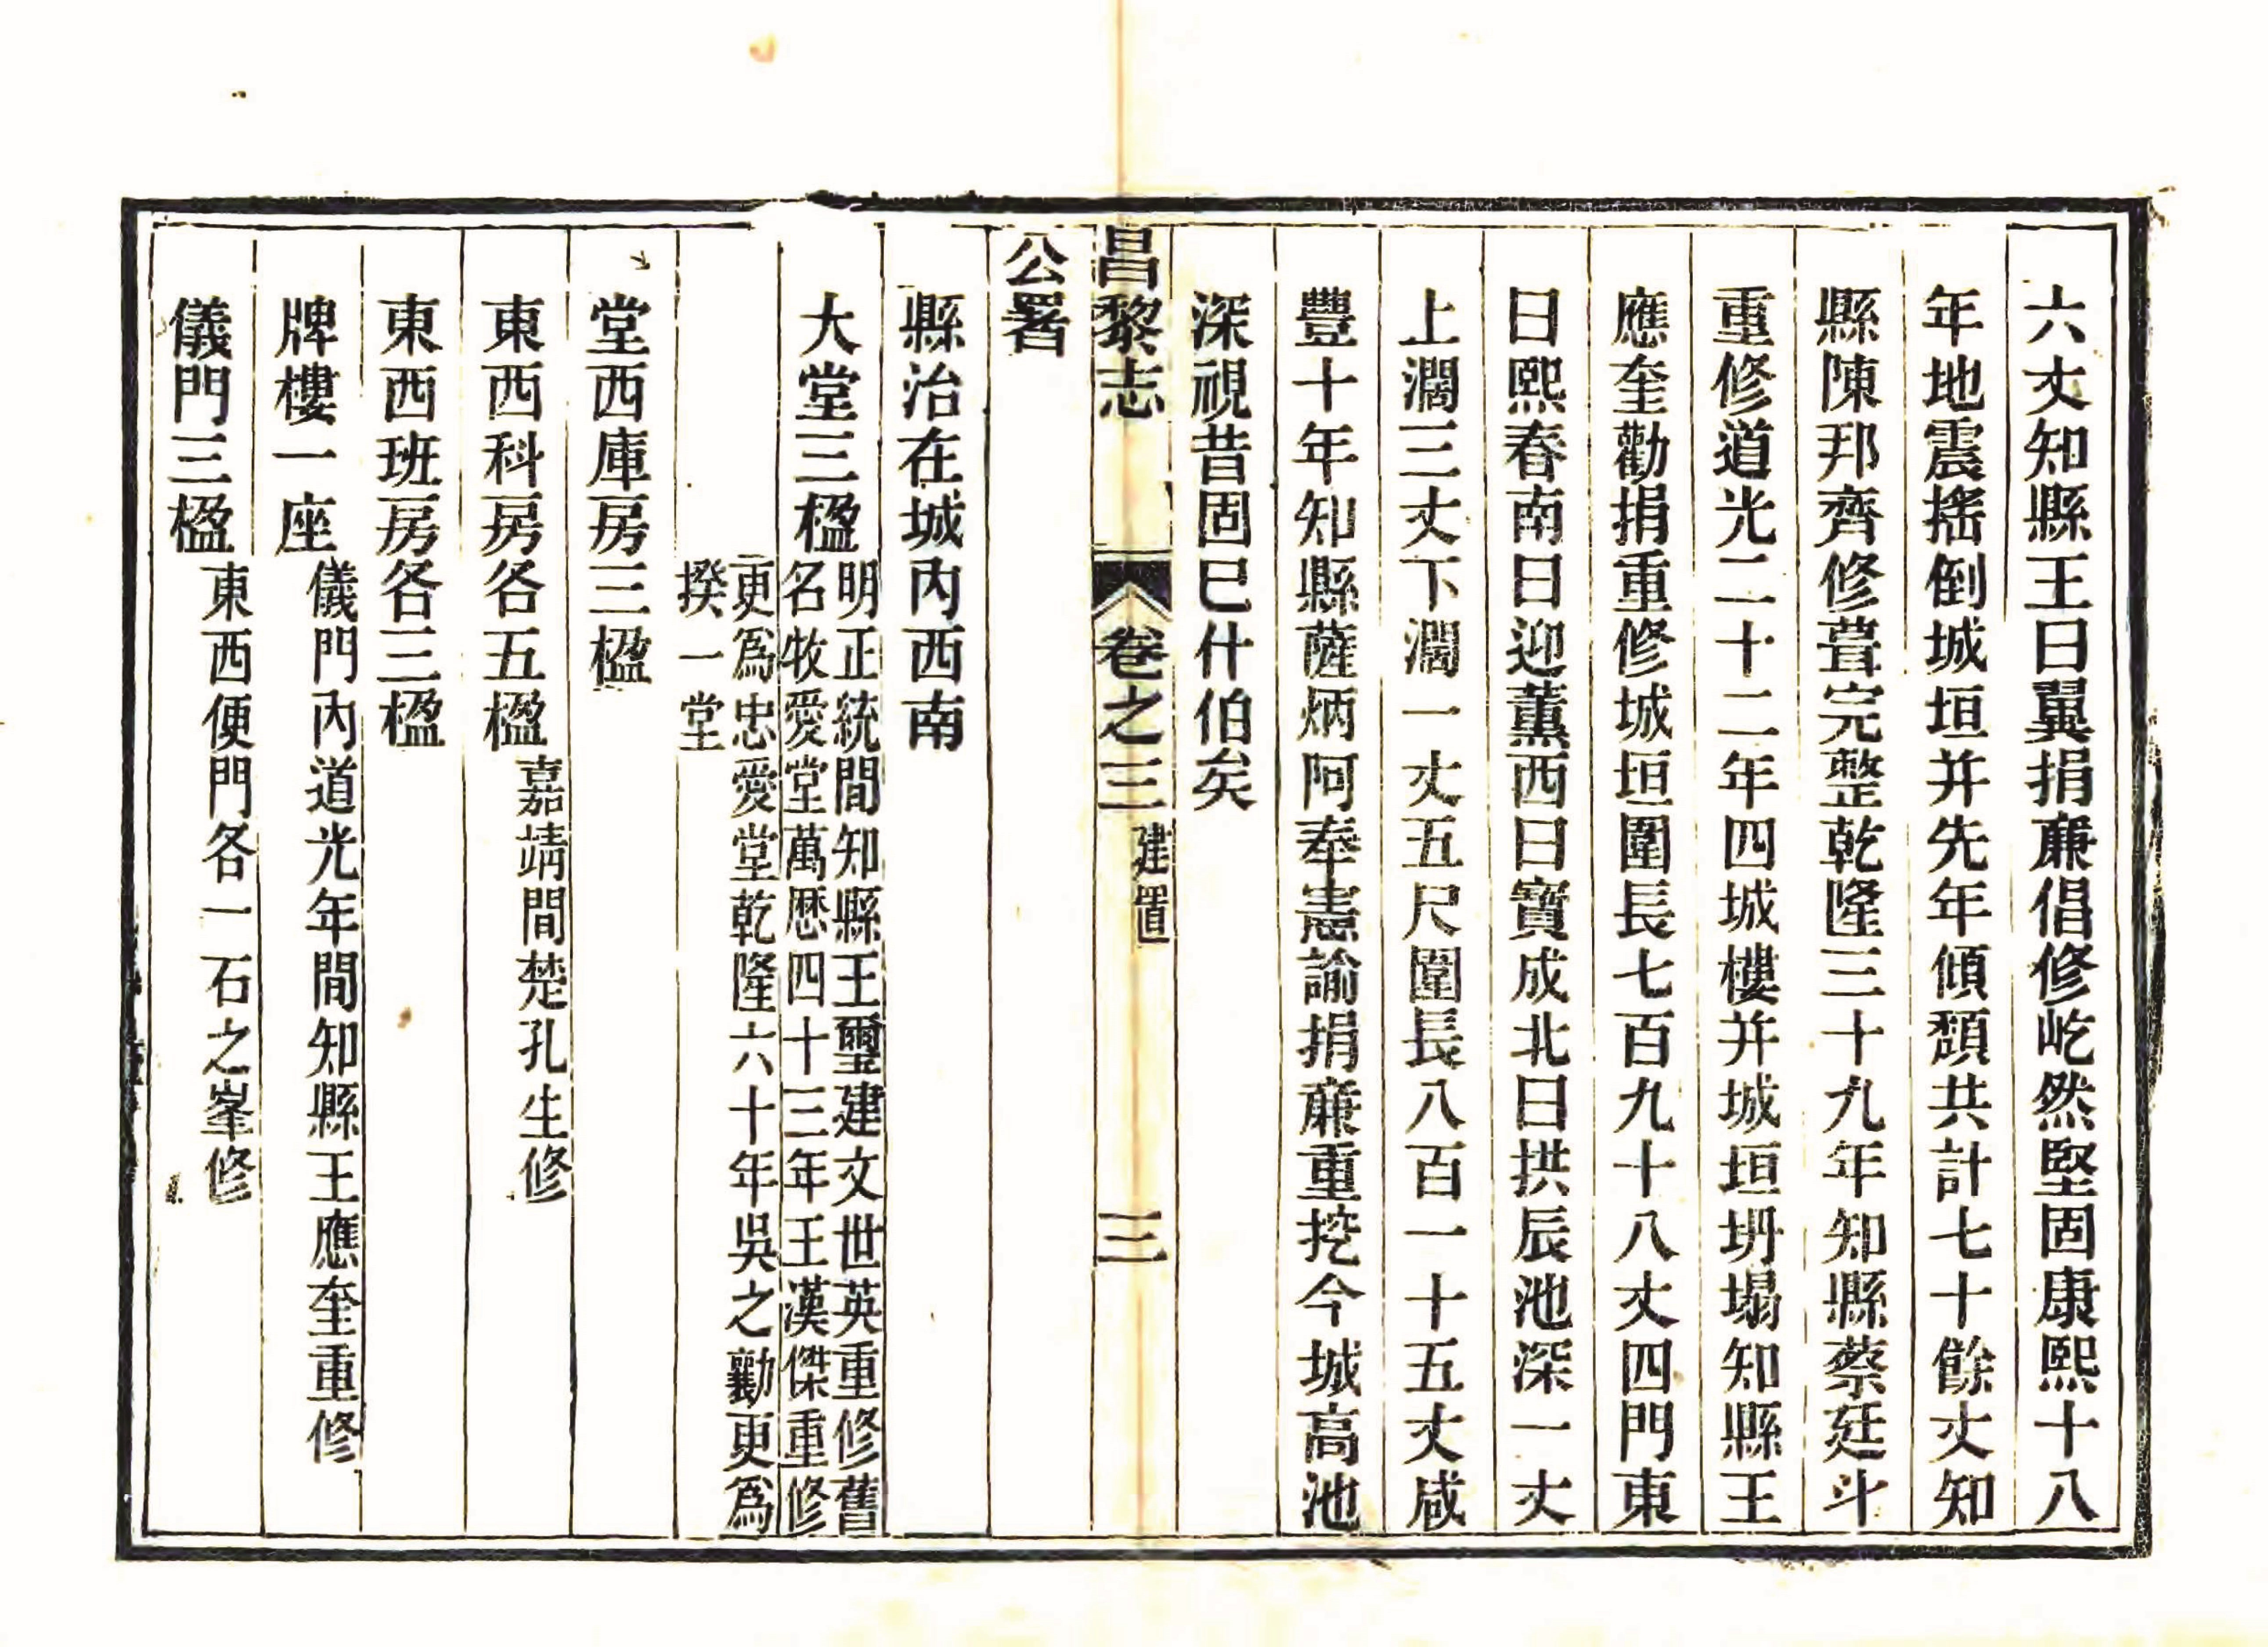 六丈知縣王曰翼捐廉倡修屹然堅固康熙十八
年地震搖倒城垣并先年傾頽共計七十餘丈知
縣陳邦齊修葺完整乾隆三十九年知縣蔡廷斗
重修道光二十二年四城樓并城垣坍塌知縣王
應奎勸捐重修城垣圍長七百九十八丈四門東
曰熙春南曰迎薰西曰寶成北曰拱辰池深一丈
上濶三丈下濶一丈五尺圍長八百一十五丈咸
豐十年知縣薩炳阿奉憲諭捐廉重挖今城高池
深視昔固已什伯矣
昌黎志 卷之三 建置 三
公署
縣治在城內西南
大堂三楹 明正統間知縣王璽建文世英重修舊
名牧愛堂萬歷四十三年王漢傑重修
更爲忠愛堂乾隆六十年吳之勷更爲
揆一堂
堂西庫房三楹
東西科房各五楹 嘉靖間楚孔生修
東西班房各三楹
牌樓一座 儀門內道光年間知縣王應奎重修
儀門三楹 東西便門各一石之峯修